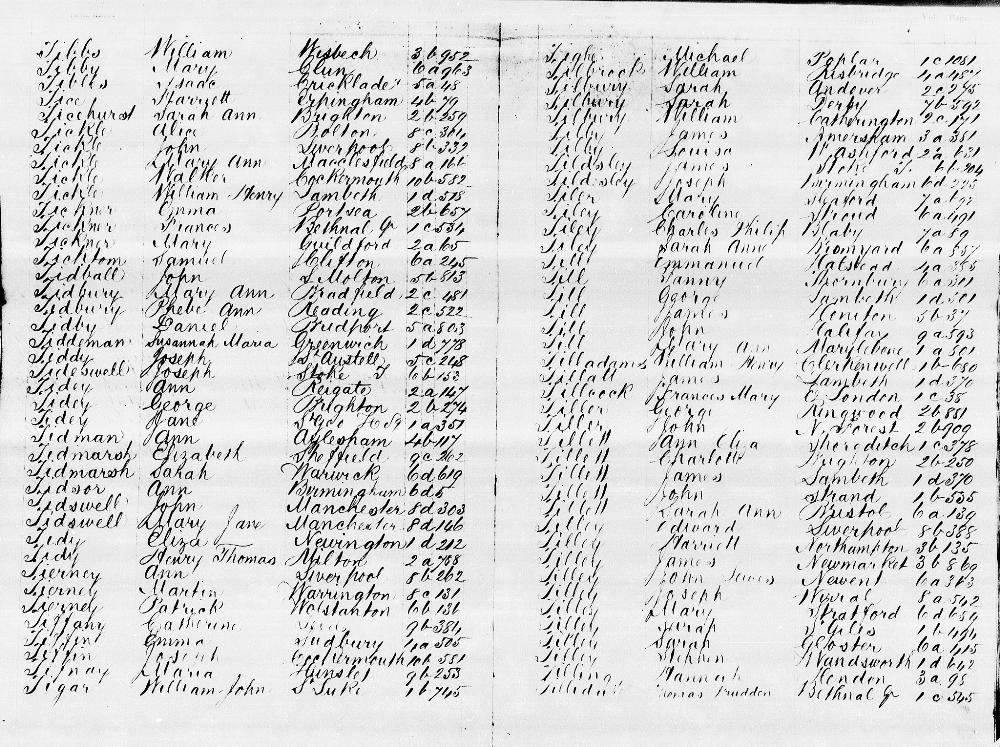 Tibbs William Wisbech 3b952
Tibby Mary Clun 6a963
Tibles Isaac Cricklade 5a48
Tice Harriett Erpingham 4b79
Ticehurst Sarah Ann Brighton 2b259
Tickle Alice Bolton 8c361
Tickle John Liverpool 8b332
Tickle Mary Ann Macclesfield 8a166
Tickle Walker Cockermouth 10b582
Tickle William Henry Lambeth 1d378
Tickner Emma Portsea 2b657
Tickner Frances Bethnal Gr 1c534
Tickner Mary Guildford 2a65
Ticktom Samuel Clifton 6a245
Tidball John S Molton 5b813
Tidbury Mary Ann Bradfield 2c481
Tidbury Pheve Ann Reading 2c522
Tidby Daniel Bridport 5a803
Tiddeman Susannah Maria Greenwich 1d778
Tiddy Joseph St Austell 5c248
Tideswell Joseph Stoke T 6b153
Tidey Ann Reigate 2a147
Tidey George Brighton 2b274
Tidey Jane 1a351
Tidman Ann Aylesham 4b117
Tidmarsh Elizabeth Sheffield 9c262
Tidmarsh Sarah Warwick 6d619
Tidsor Ann Birmingham 6d5
Tidswell John Manchester 8d303
Tidswell Mary Jane Manchester 8d146
Tidy Eliza Newington 1d212
Tidy Henry Thomas Milton 2a768
Tierney Ann Liverpool 8b262
Tierney Martin Warrington 8c131
Tierney Patrick Wolstanton 6b136
Tiffany Catherine 9b384
Tiffin Emma Sudbury 4a305
Tiffin Joseph Cockermouth 10b551
Tifnay Maria Hunslet 9b253
Tigar William John St Luke 1b745
Tighe Michael Poplar 1c1051
Tilbrook William Risbridge 4a487
Tilbury Sarah Andover 2c275
Tilbury Sarah Derby 7b592
Tilbury William Catherington 2c141
Tilby James Amersham 3a381
Tilby Louisa W Ashford 2a631
Tildsley James Stoke T. 6b204
Tildesley Joseph Birmingham 6d225
Tiler Mary
Tiley Caroline Stroud 6a491
Tiley Charles Philip Blaby 7a89
Tiley Sarah Anne Bromyard 6a857
Till Emmanuel Halstead 4a355
Till Fanny Thornbury 6a311
Till George Lambeth 1d301
Till James Honiton 5b37
Till John Halifax 9a593
Till Mary Ann Marylebone 1a501
Tilladams William Henry Clerkenwell 1b680
Tillatt James Lambeth 1d370
Tillcock Frances Mary E London 1c38
Tiller George Ringwood 2b881
Tiller John N Forest 2b909
Tillett Ann Eliza Shoreditch 1c378
Tillett Charlotte Brighton 2b250
Tillett James Lambeth 1d370
Tillett John Strand 1b535
Tillett Sarah Ann Bristol 6a139
Tilley Edward Liverpool 8b388
Tilley Harriett Northampton 3b135
Tilley James Newmarket 3b869
Tilley John Newent 6a313
Tilley Joseph Wirral 8a542
Tilley Mary Stratford 6d654
Tilley Sarah S Giles 1b494
Tilley Sarah Gloster 6a415
Tilley Stephen Wandsworth 1d642
Tilling Hannah Hendon 3a95
Thomas Prudden Bethnal Gr 1c345